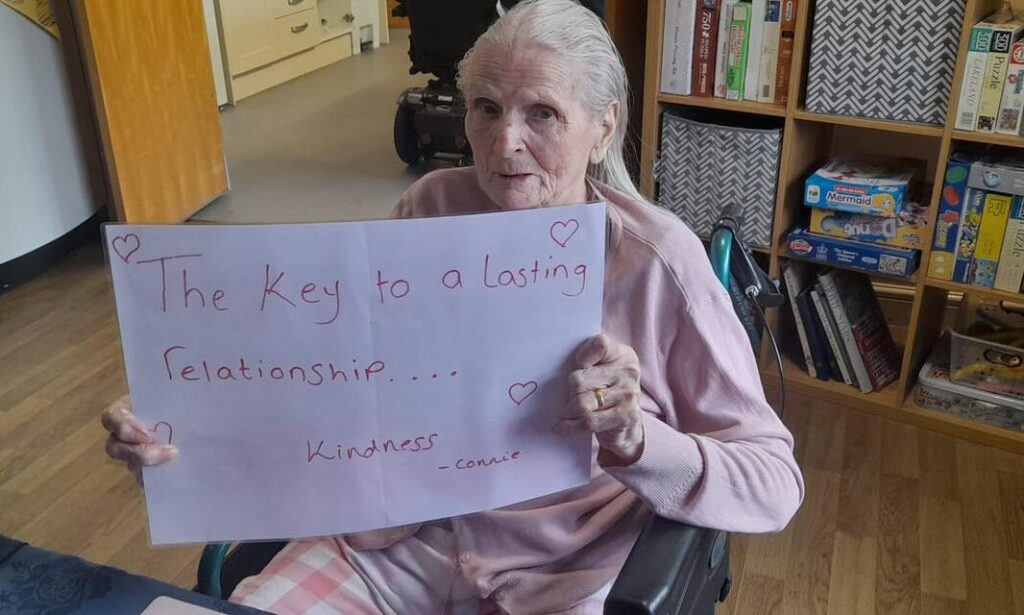 The Key to a lasting
relationship....
Kindness
- Connie
750
500
500
Puzzle
Mermaid